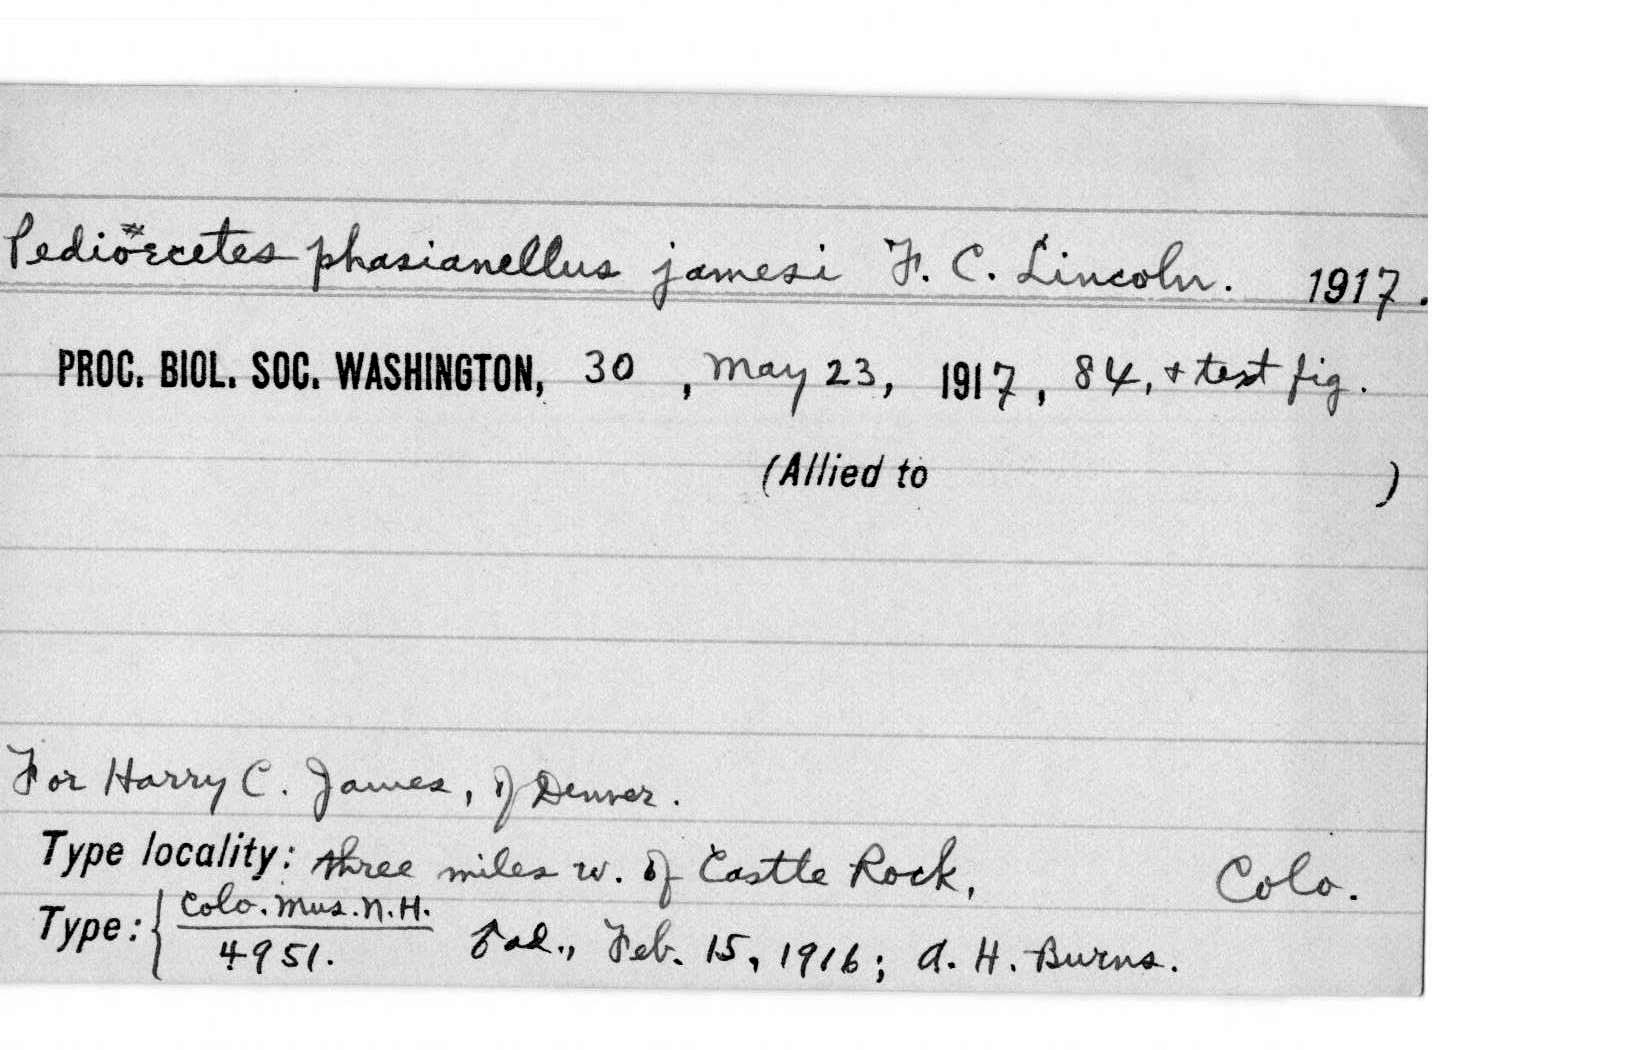 Pedioecetes phasianellus jamesi F. C. Lincoln. 1917.
PROC. BIOL. SOC. WASHINGTON, 30, May 23, 1917, 84, + text fig.
(Allied to )
For Harry C. James, of Denver.
Type locality: three miles w. of Castle Rock, Colo.
Type: { Colo. Mus. N. H.
4951. ad., Feb. 15, 1916; A. H. Burns.